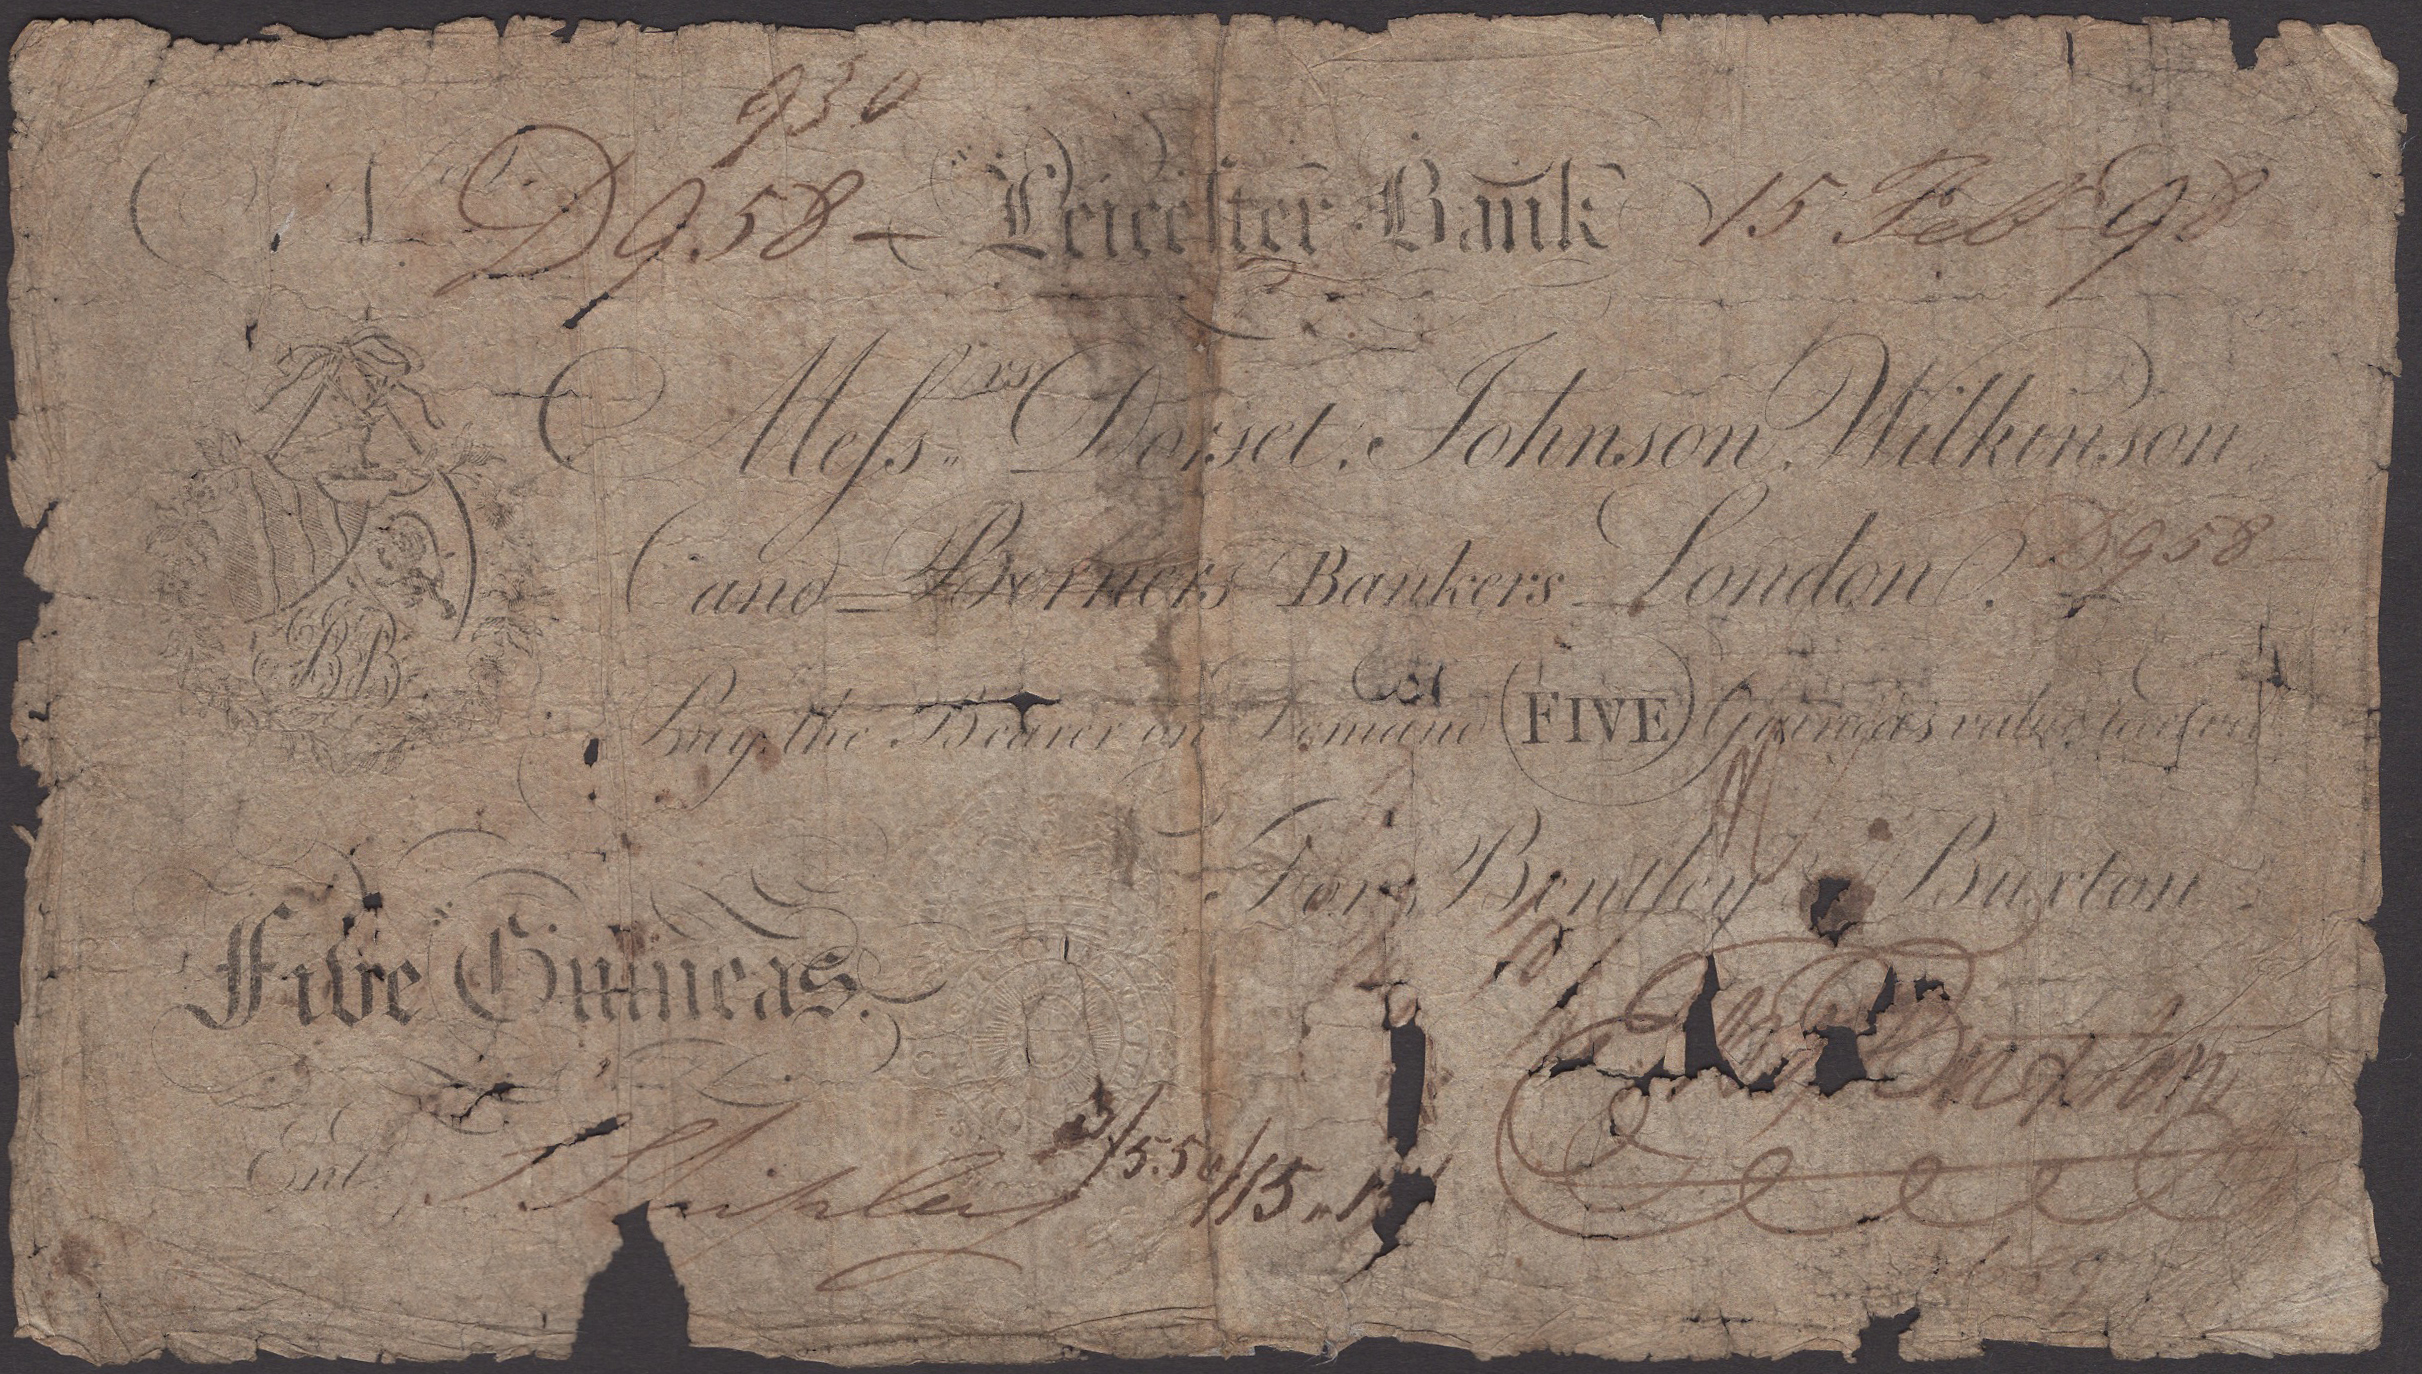 930
No. D958 — Leicester Bank 15 Feb 98
Messrs Dorset, Johnson, Wilkinson
and Berners Bankers London. D958
BB
Pay the Bearer on Demand FIVE Guineas value received
For Bentley & Buxton
Five Guineas.
Entd.
Buxton